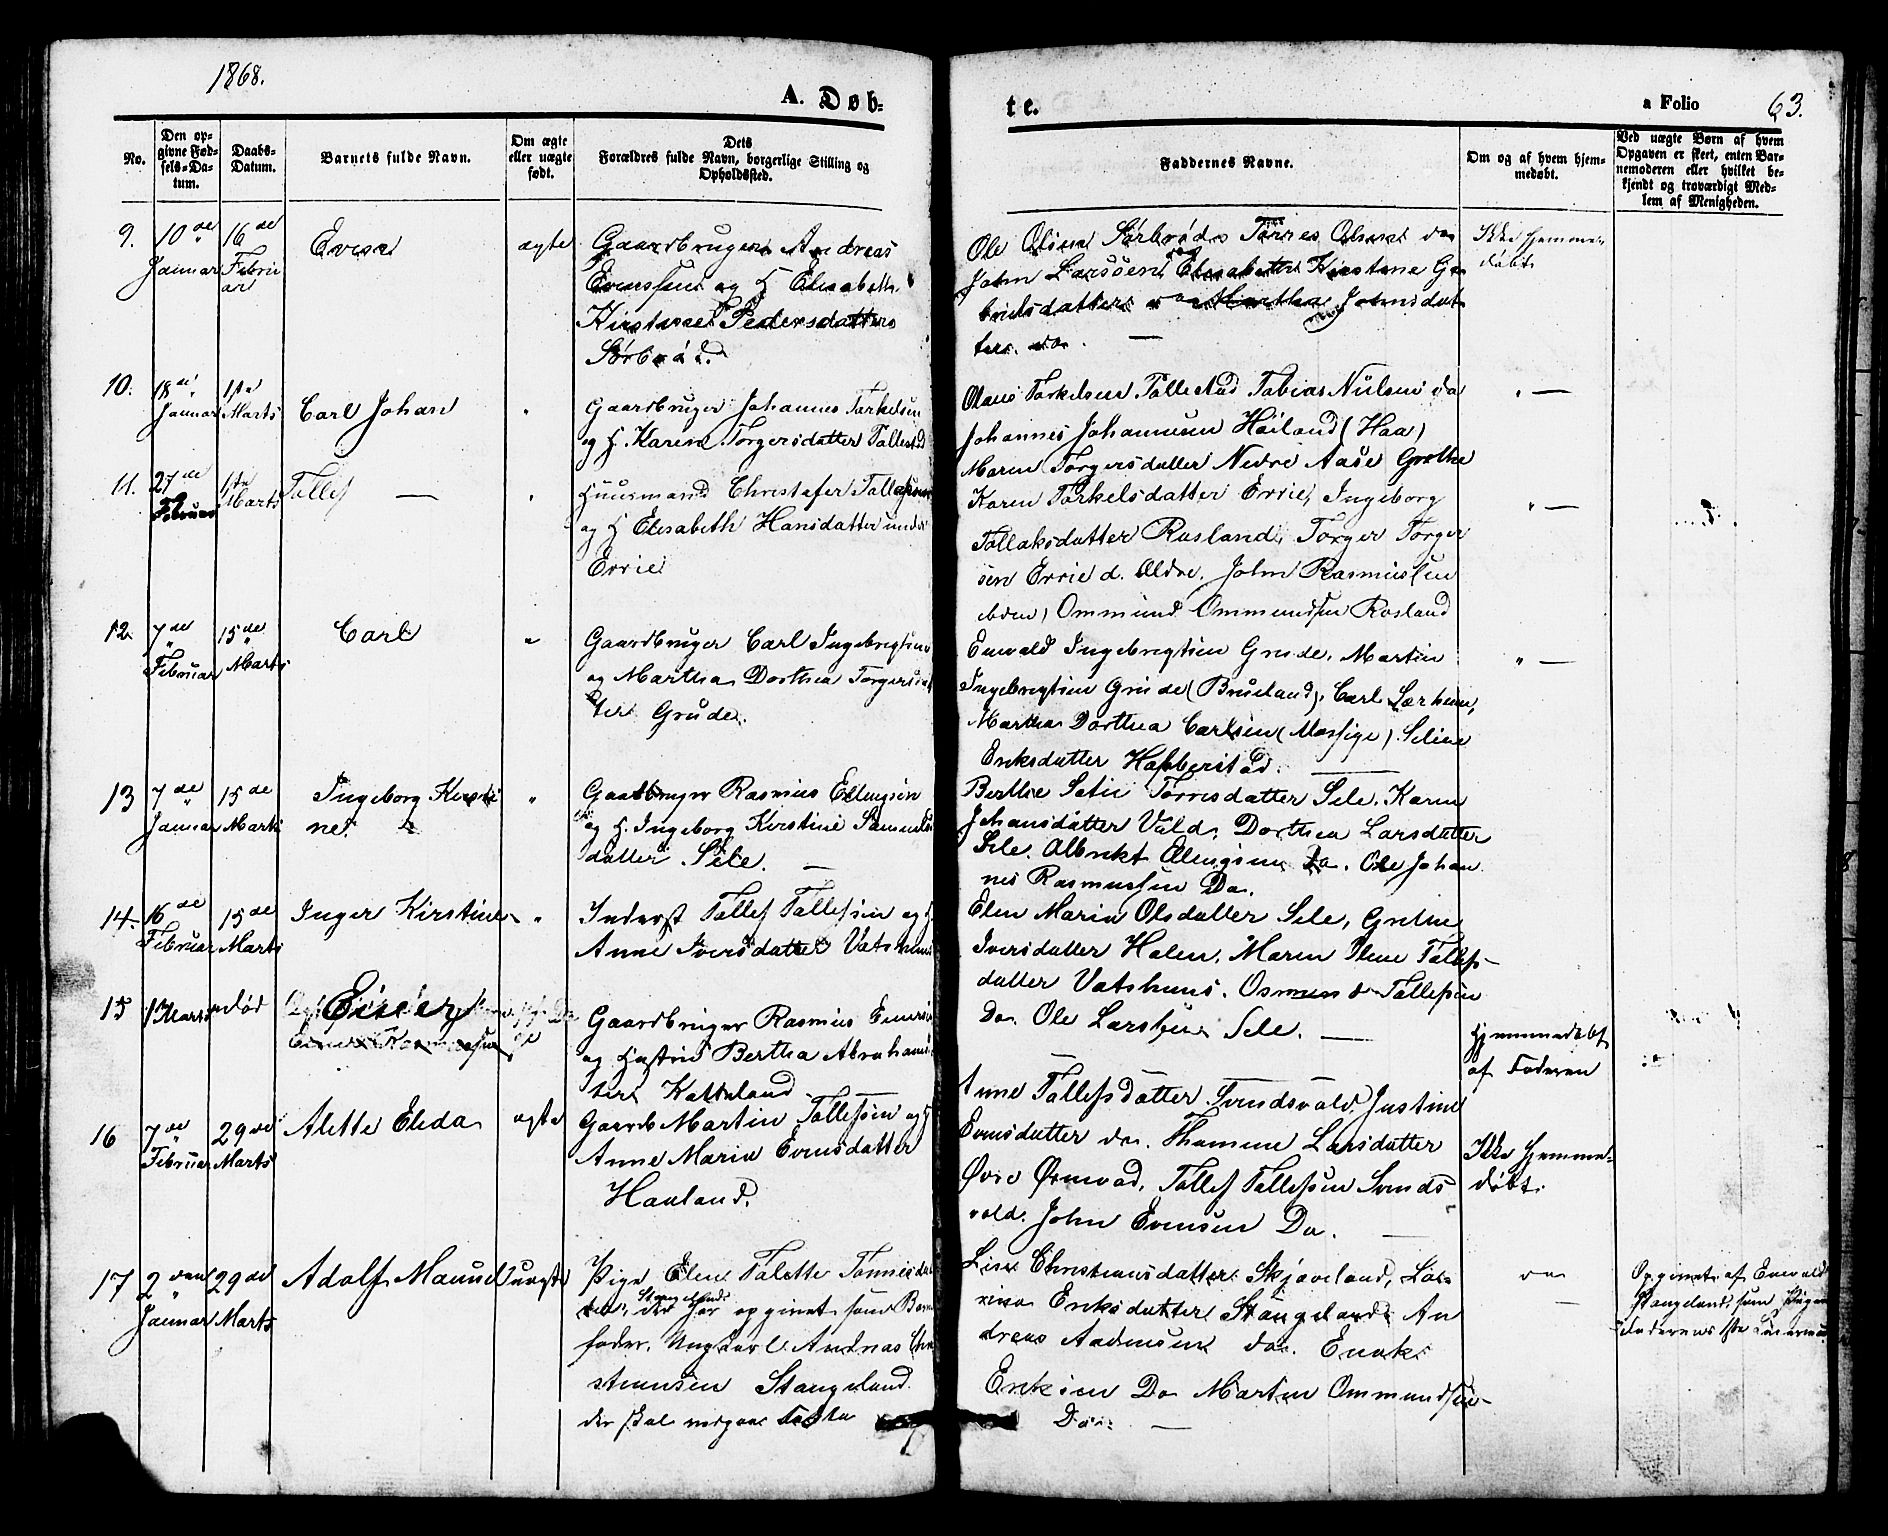 1868.
A. Døb-
te.
a Folio 63.
No.
Den op-
givne Fød-
sels-Da-
tum.
Daabs-
Datum.
Barnets fulde Navn.
Om ægte
eller uægte
født.
Dets
Forældres fulde Navn, borgerlige Stilling og
Opholdssted.
Faddernes Navne.
Om og af hvem hjem-
medøbt.
Ved uægte Børn af hvem
Opgaven er skeet, enten Bar-
nemoderen eller hvilket be-
kjendt og troværdigt Med-
lem af Menigheden.
9.
10de
Januar
16de
Febru
ar
Even
ægte
Gaardbruger Andreas
Evensen og H Elisabeth
Kirstine Pedersdatter
Sørbrød.
Ole Olsen Sørbrød Tørres Olsen do
John Larssen Elisabeth Kirstine Ga
brielsdatter do Martha Johnsdat
ter do. —
Ikke hjemme-
døbt
10.
18de
Januar
1ste
Marts
Carl Johan
"
Gaardbruger Johannes Torkelsen
og H. Karen Torgersdatter Tollestad
Olaus Torkelsen Tollestad Tobias Nilsen do
Johannes Johannesen Høiland (Haa)
Maren Torgersdatter Nedre Aase Grethe
" —
11.
27de
Februar
1ste
Marts
Tollef —
"
Huusmand Christofer Tollefsen
og H Elisabeth Hansdatter under
Errie
Karen Torkelsdatter Errie, Ingeborg
Tollaksdatter Rosland, Torger Torger
sen Errie d. Ældre, John Rasmussen
ibden, Ommund Ommundsen Rosland
" —
12.
7de
Februar
15de
Marts
Carl
"
Gaardbruger Carl Ingebrigtsen
og Martha Dorthea Torgersdat
ter Grude.
Enevald Ingebrigtsen Grude, Martin
Ingebrigtsen Grude (Brueland), Carl Særheim,
Martha Dorthea Carlsen (Mossige) Seline
Eriksdatter Habberstad.
" —
13
7de
Januar
15de
Marts
Ingeborg Kirsti
ne.
"
Gaardbruger Rasmus Ellingsen
og H. Ingeborg Kirstine Samuels
datter Sele. —
Berthe Torrisdatter Sele, Karen
Johansdatter Vold, Dorthea Larsdatter
Sele. Albrekt Ellingsen Do. Ole Johan
nes Rasmussen Do.
14.
16de
Februar
15de
Marts
Inger Kirstine
"
Inderst Tollef Tollefsen og H
Anne Iversdatter Vatshuus
Elen Maria Olsdatter Sele, Grethe
Iversdatter Holen, Maren Elene Tollefs-
datter Vatshuus. Osmund Tollefsen
Do. Ole Larssen Sele. —
15
13 Marts
død
Einer
Gaardbruger Rasmus
og Hustru Bertha Abrahams
ter Katteland
Hjemmedøbt
af Faderen
16
7de
Februar
29de
Marts
Alette Elida
ægte
Gaardb Martin Tollefsen og H
Anne Maria Evensdatter
Haaland.
Anne Tollefsdatter Svendsvold, Justine
Evensdatter do. Thomine Larsdatter
Øvre Ørsvad, Tollef Tollefsen Svends
vold. John Evensen Do. —
Ikke hjemme-
døbt.
17
2den
Januar
29de
Marts
Adolf Mauuel
uægte
Pige Elene Talette Tønnesdat
ter Stangeland, der har opgivet som Barne
fader, Ungkarl Andreas
stiansen Stangeland
der skal
Lise Christiansdatter Skjæveland, Lov
risa Eriksdatter Stangeland An
dreas Aadnesen do. Enok
Eriksen Do Martin Ommundsen
Do. —
do
—
Opgivet af Enevald
Stangeland, som Pigen
Faderens 1ste Leiermaal